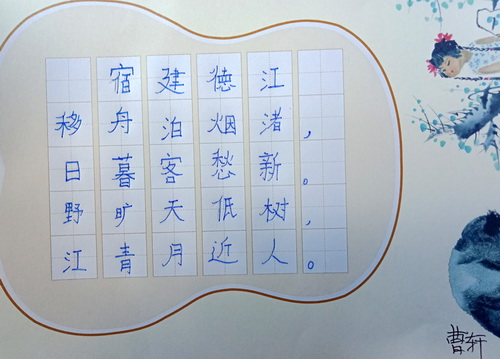 宿建德江
移舟泊烟渚，
日暮客愁新。
野旷天低树，
江青月近人。
曹轩